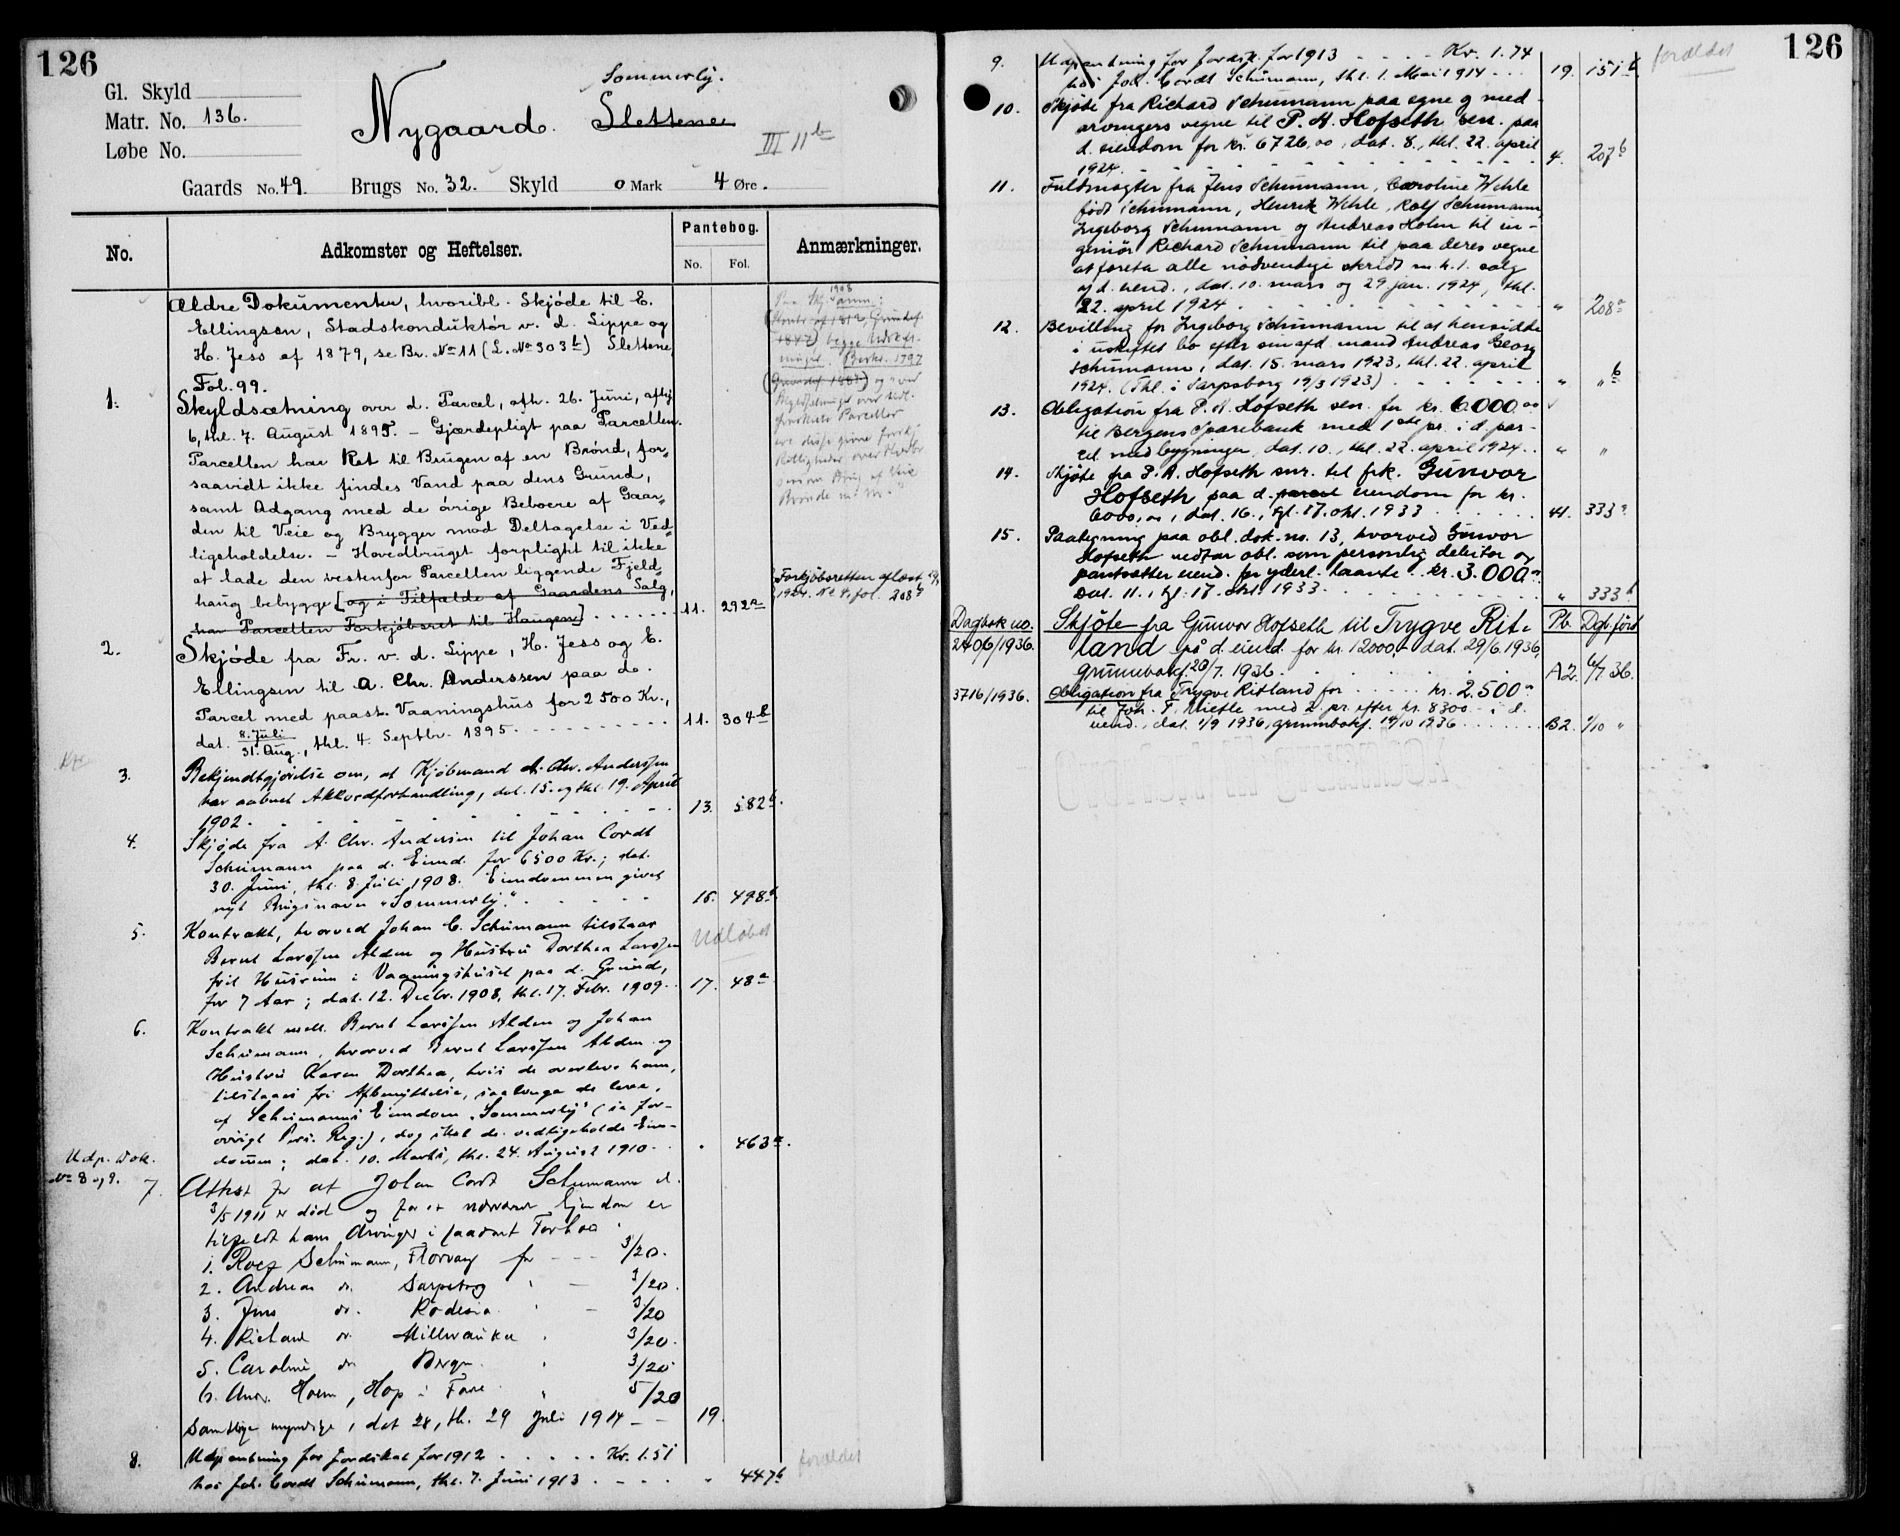 126
Gl. Skyld
Matr. No. 136.
Løbe No.
Sommerly.
Nygaard. Slettene
III 11 b
Gaards No. 49. Brugs No. 32. Skyld 0 Mark 4 Øre.
No.
Adkomster og Heftelser.
Pantebog.
No. Fol.
Anmærkninger.
Ældre Dokumenter, hvoribl. Skjøde til E.
Ellingsen, Stadskonduktør v. d. Lippe og
H. Jess af 1879, se Br. No 11 (L. No 303 b) Slettene
Fol. 99.
1. Skyldsætning over d. Parcel, afh. 26. Juni, afhj.
6, thl. 7. August 1895. – Gjærdepligt paa Parcellen.
Parcellen har Ret til Brugen af en Brønd, for-
saavidt ikke findes Vand paa dens Grund,
samt Adgang med de øvrige Beboere af Gaar-
den til Veie og Brygger mod Deltagelse i Ved-
ligeholdelse. – Hovedbruget forpligtet til ikke
at lade den vestenfor Parcellen liggende Fjeld-
haug bebygge [og i Tilfælde af Gaardens Salg,
har Parcellen Forkjøbsret til Haugen] 11. 292 a
Forkjøbsretten aflæst
1924. No 4, fol. 208
2. Skjøde fra Fr. v. d. Lippe, H. Jess og E.
Ellingsen til A. Chr. Anderssen paa do.
Parcel med paast. Vaaningshus for 2500 Kr.,
dat. 8. Juli / 31. Aug., thl. 4. Septbr. 1895. 11. 304 b
3. Bekjendtgjørelse om, at Kjøbmand A. Chr. Anderssen
har aabnet Akkordforhandling, dat. 15. og thl. 19. April
1902. 13. 582 b.
4. Skjøde fra A. Chr. Andersen til Johan Cordt
Schumann paa d. Eiend. for 6500 Kr.; dat.
30. Juni, thl. 8. Juli 1908. Eiendommen givet
nyt Brugsnavn "Sommerly". 16. 498
5. Kontrakt, hvorved Johan C. Schumann tilstaar
Bernt Larssen Alden og Hustru Dorthea Larssen
frit Husrum i Vaaningshuset paa d. Grund,
for 7 Aar; dat. 12. Decbr. 1908, thl. 17. Febr. 1909. 17. 48 a
Udløbet
6. Kontrakt mell. Bernt Larssen Alden og Johan
Schumann, hvorved Bernt Larssen Alden og
Hustru Karen Dorthea, hvis de overleve ham,
tilstaaes fri Afbenyttelse, saalænge de leve,
af Schumanns Eiendom "Sommerly" (se for-
øvrigt Pers. Reg.), dog skal de vedligeholde Eien-
dommen; dat. 10. Marts, thl. 24. August 1910. " 463 a.
Udp. Dok.
No 8 og 9.
7. Attest for at Johan Cordt Schumann d.
3/5 1911 er død og for at nærværende Eiendom er
tilfaldt hans Arvinger i saadant Forhold:
1. Rolf Schumann, Florvaag for 3/20.
2. Andreas do. Sarpsborg " 3/20.
3. Jens do. Rodesia " 3/20
4. Richard do. Millwaukee " 3/20.
5. Caroline do. Bergen " 3/20
6. Andr. Holm, Hop i Fane " 5/20
samtlige myndige, dat 28, thl. 29 Juli 1914 19.
8. Udpantning for Jordskat for 1912 Kr. 1.51
hos Joh. Cordt Schumann, thl. 7. Juni 1913 " 447 b
forældet
126
9. Udpantning for Jordsk. for 1913 Kr. 1.74
hos Joh. Cordt Schumann, thl. 1. Mai 1914 19. 151 b
forældet
10. Skjøte fra Richard Schumann paa egne og med-
arvingers vegne til P. A. Hofseth sen. paa
d. eiendom for kr. 6726,00, dat. 8., thl. 22. april
1924. 4. 207 b
11. Fuldmagter fra Jens Schumann, Caroline Wehle
født Schumann, Henrik Wehle, Rolf Schumann,
Ingeborg Schumann og Andreas Holm til in-
geniør Richard Schumann til paa deres vegne
at foreta alle nødvendige skridt m. h. t. salg
af d. eiend., dat. 10. mars og 29. jan. 1924, thl.
22. april 1924 " 208 a
12. Bevilling for Ingeborg Schumann til at hensidde
i uskiftet bo efter sin afd. mand Andreas Georg
Schumann, dat. 15. mars 1923, thl. 22. april
1924. (Thl. i Sarpsborg 19/3 1923) " " b
13. Obligation fra P. A. Hofseth sen. for kr. 6000.00
til Bergens Sparebank med 1ste pr. i d. par-
cel med bygninger, dat. 10., thl. 22. april 1924. " "
14. Skjøte fra P. A. Hofseth snr. til frk. Gunvor
Hofseth paa d. parcel eiendom for kr.
6000,00, dat. 16., tgl. 17. okt. 1933 41. 333 a
15. Paategning paa obl. dok. no. 13, hvorved Gunvor
Hofseth vedtar obl. som personlig debitor og
pantsætter eiend. for yderl. laante kr. 3.000.00
Dat. 11., tgl. 17. okt. 1933 " 333 b
Dagbok no. Pb. Dgb.ført
2406/1936. Skjøte fra Gunvor Hofseth til Trygve Rit-
land på d. eiend. for kr. 12000,- dat. 29/6 1936,
Grunnbokf. 20/7. 1936 A2. 6/7 36.
3716/1936. Obligation fra Trygve Ritland for kr. 2.500.00
til Joh. T. med 2. pr. efter kr. 8300.- i d.
eiend., dat. 1/9 1936, grunnbokf. 14/10 1936 B2. 1/10 "